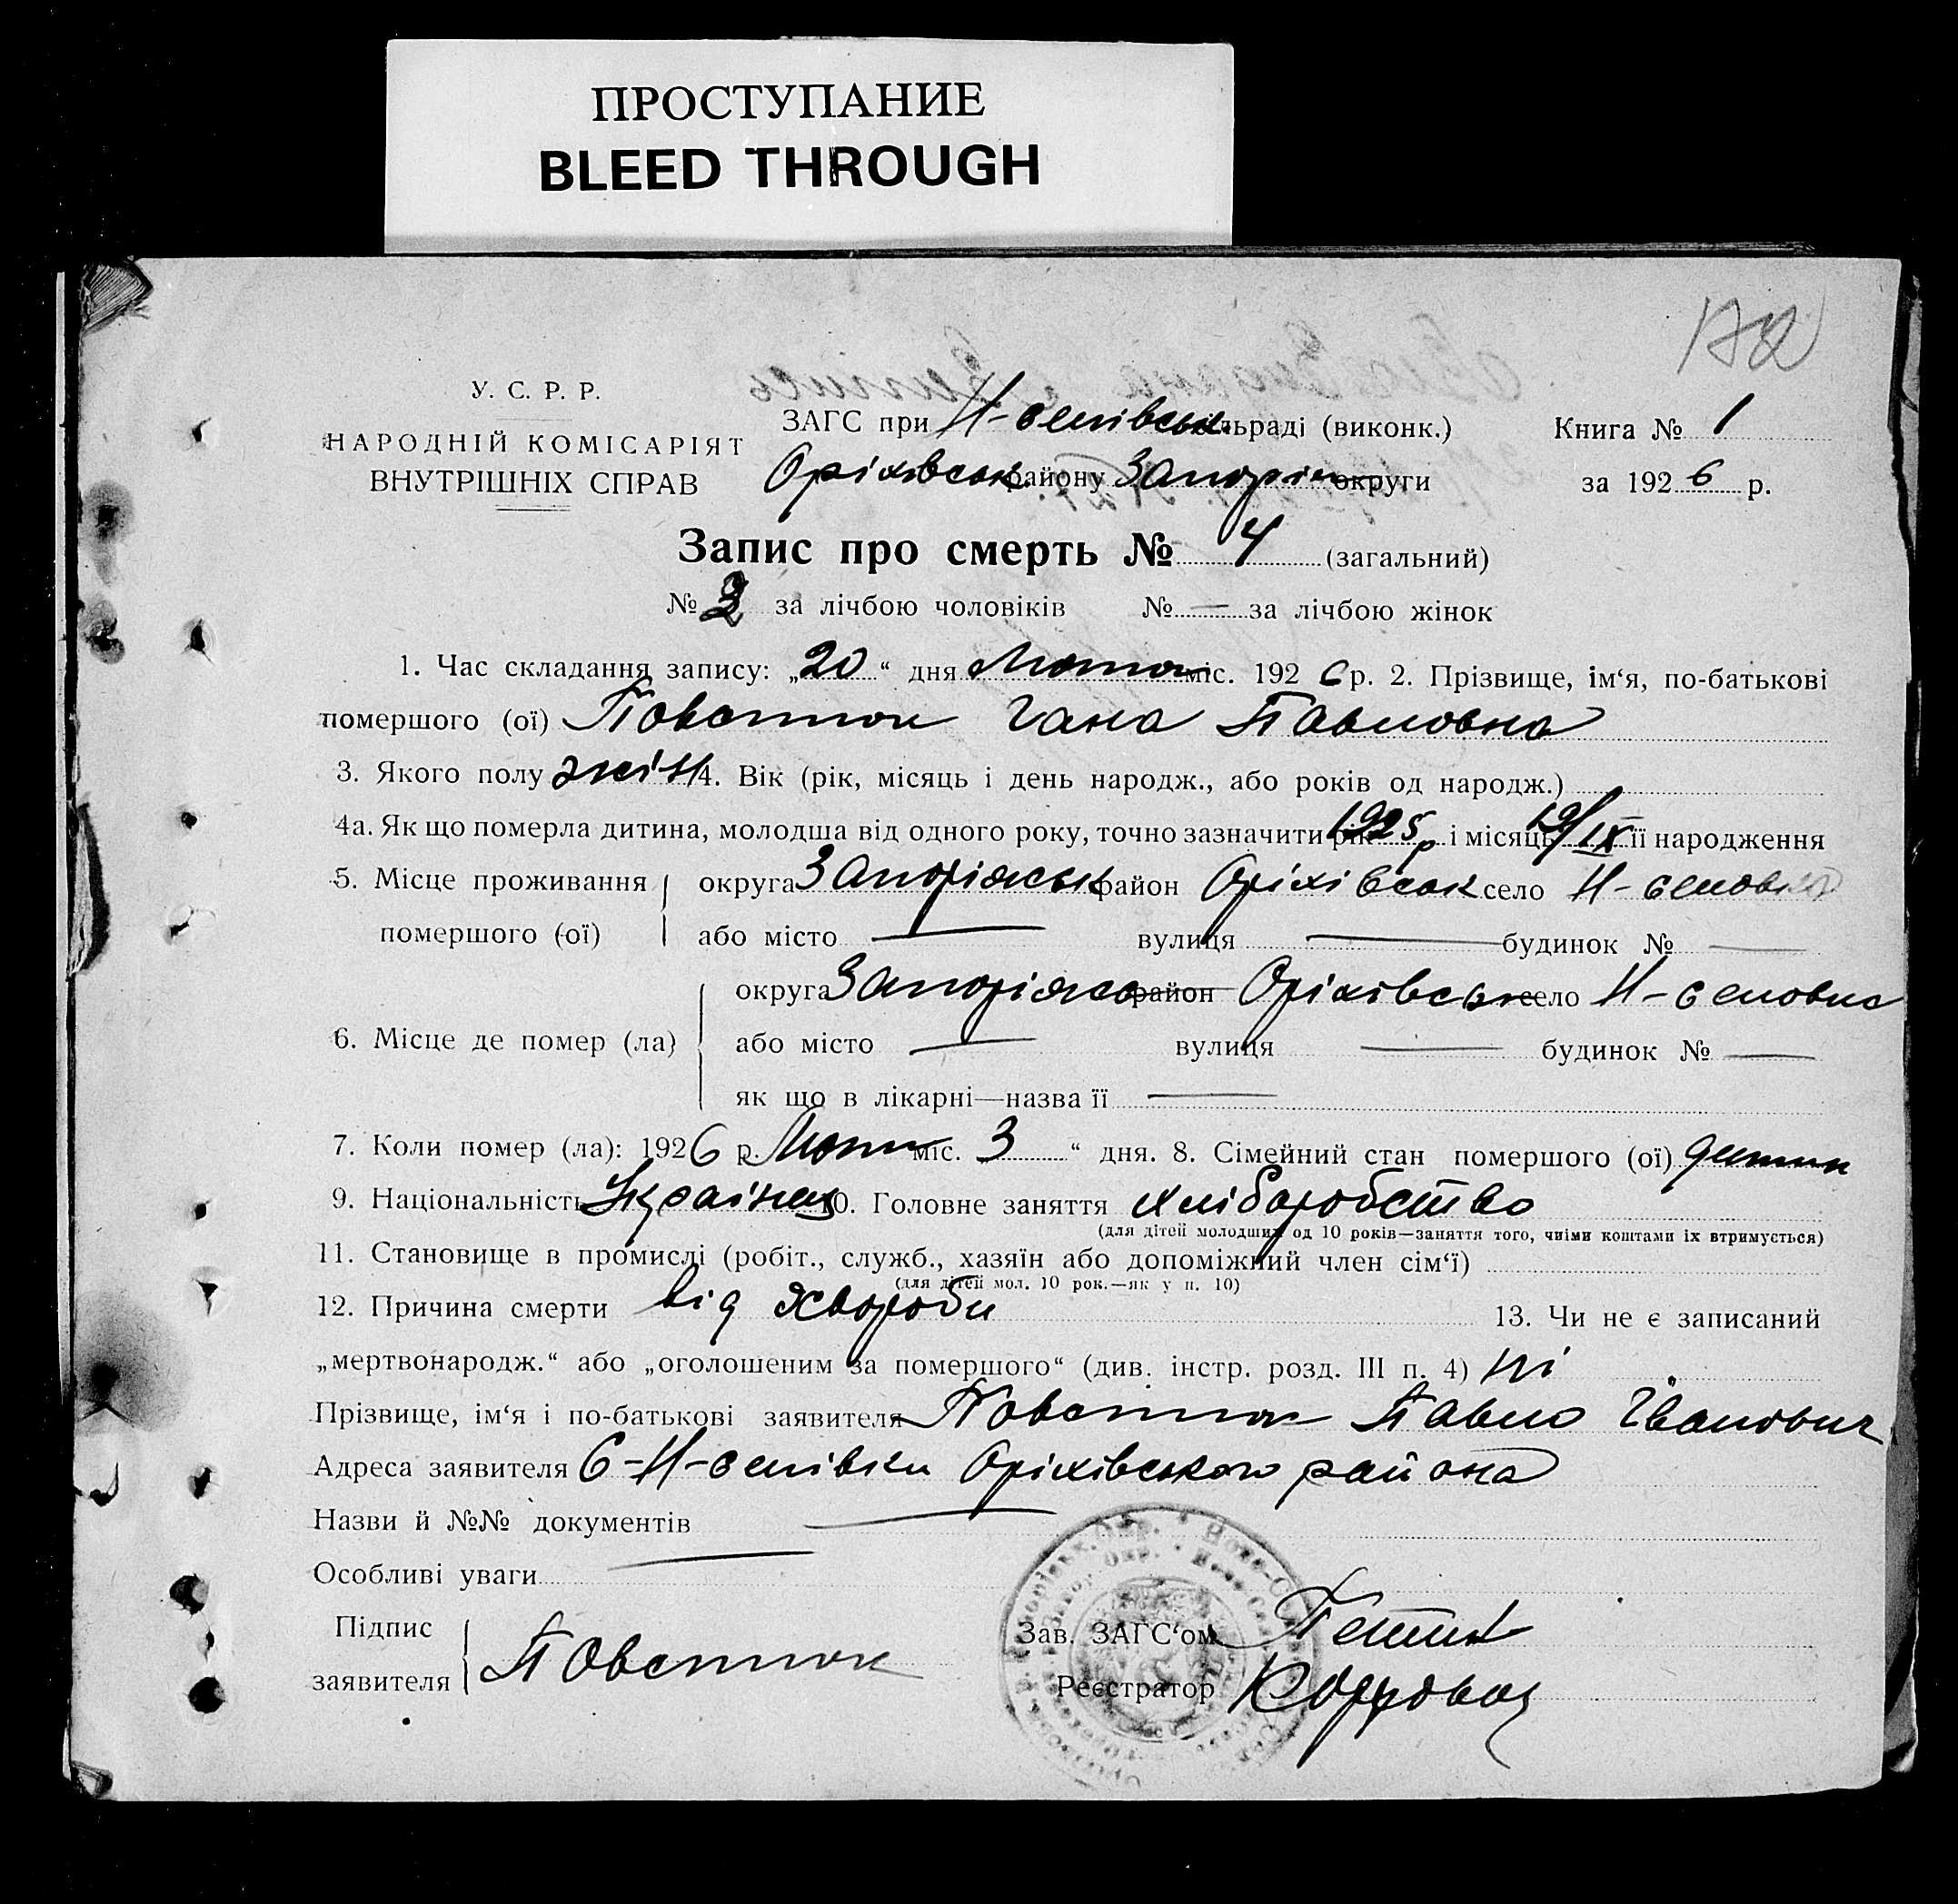 ПРОСТУПАНИЕ
BLEED THROUGH
У. С. Р. Р.
НАРОДНІЙ КОМІСАРІЯТ
ВНУТРІШНІХ СПРАВ
ЗАГС при Н-селівськ. сільраді (виконк.)
Оріхівськ району Запоріж округи
Книга № 1
за 1926 р.
Запис про смерть № 4 (загальний)
№ 3 за лічбою чоловіків № — за лічбою жінок
1. Час складання запису: „20“ дня Лютого міс. 1926 р. 2. Прізвище, ім‘я, по-батькові
помершого (ої) Гана Павловна
3. Якого полу жін 4. Вік (рік, місяць і день народж., або років од народж.)
4а. Як що померла дитина, молодша від одного року, точно зазначити рік 1925 р і місяць 19/IX її народження
5. Місце проживання округа Запоріжськ район Оріхівськ село Н-селовка
помершого (ої) або місто — вулиця — будинок № —
округа Запоріжс район Оріхівськ село Н-селовка
6. Місце де помер (ла) або місто — вулиця — будинок № —
як що в лікарні—назва її —
7. Коли помер (ла): 1926 р. Лютий міс. 3 “ дня. 8. Сімейний стан помершого (ої) дитин
9. Національність 10. Головне заняття хліборобство
(для дітей молодших од 10 років—заняття того, чиіми коштами іх втримується)
11. Становище в промислі (робіт., служб., хазяїн або допоміжний член сім‘ї)
(для дітей мол. 10 рок.—як у п. 10)
12. Причина смерти від хвороби 13. Чи не є записаний
„мертвонародж.“ або „оголошеним за помершого“ (див. інстр. розд. III п. 4) ні
Прізвище, ім‘я і по-батькові заявителя Павло Іванович
Адреса заявителя С-Н-селівки Оріхівського района
Назви й №№ документів —
Особливі уваги —
Підпис
заявителя
Зав. ЗАГС‘ом
Реєстратор